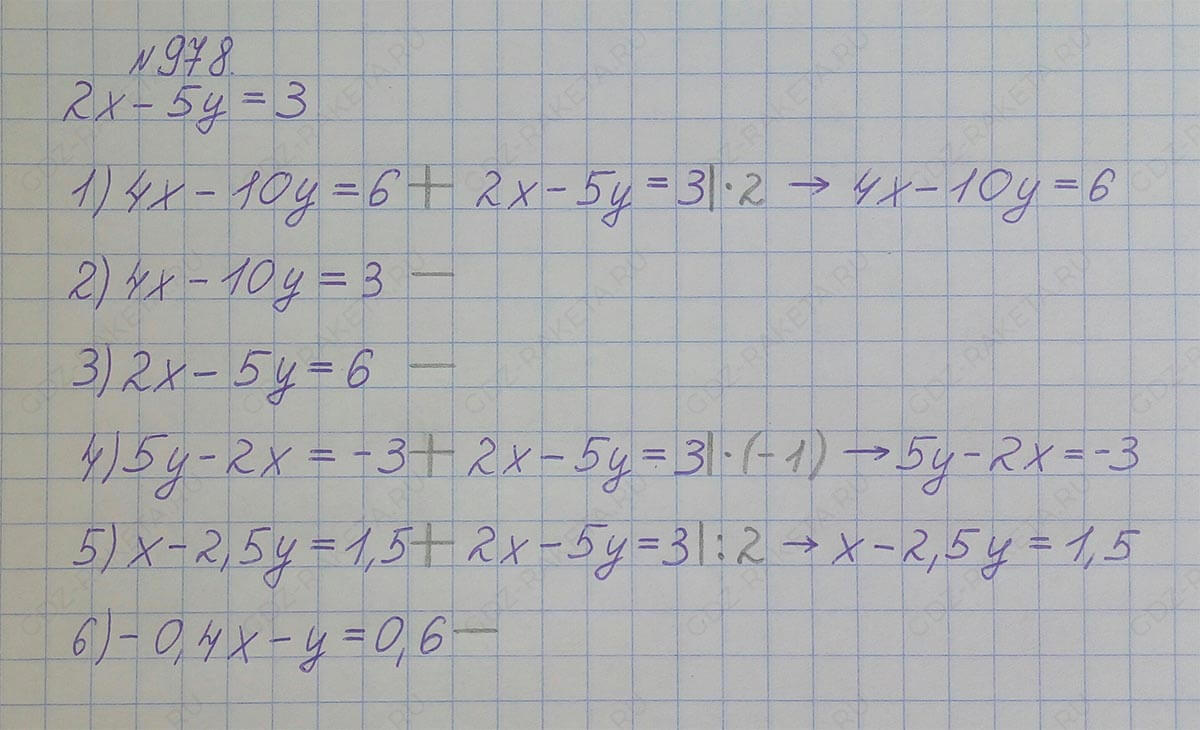 №978.
2x - 5y = 3
1) 4x - 10y = 6 + 2x - 5y = 3|·2 → 4x - 10y = 6
2) 4x - 10y = 3 —
3) 2x - 5y = 6 —
4) 5y - 2x = -3 + 2x - 5y = 3|·(-1) → 5y - 2x = -3
5) x - 2,5y = 1,5 + 2x - 5y = 3|:2 → x - 2,5y = 1,5
6) - 0,4x - y = 0,6 —
GDZ-RAKETA.RU